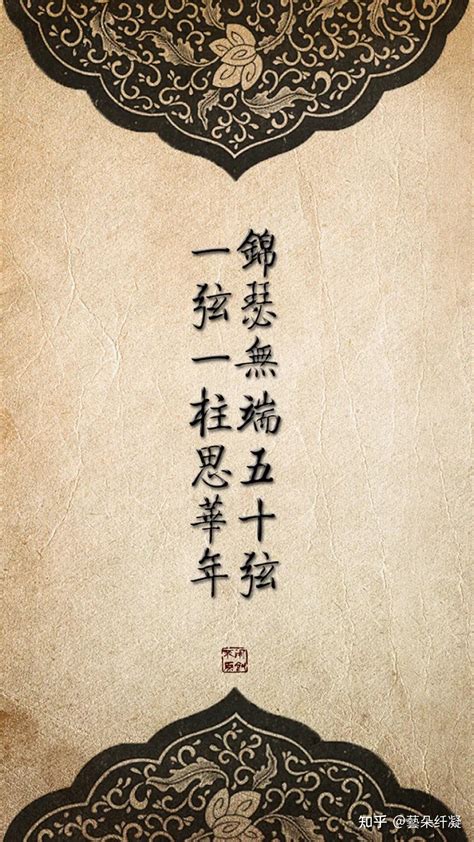 錦瑟無端五十弦
一弦一柱思華年
知乎 @藝朵纤凝